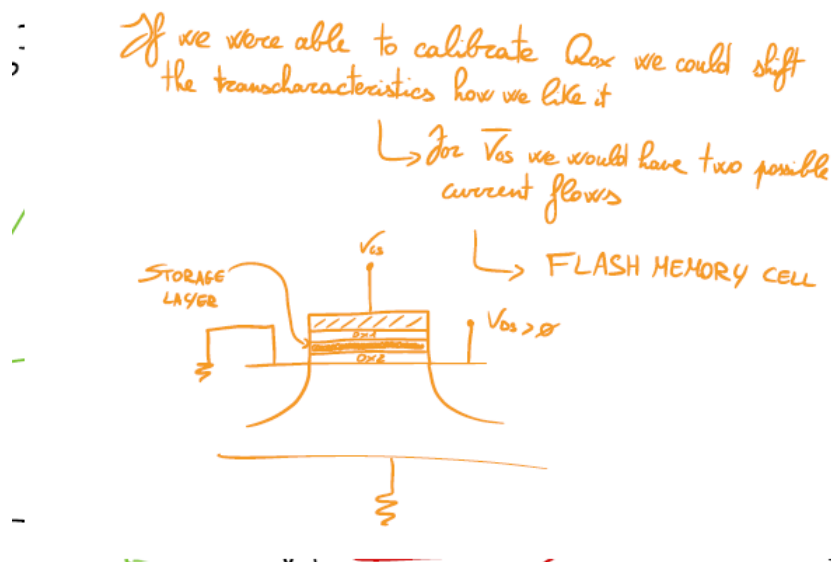 If we were able to calibrate Qox we could shift
the transcharacteristics how we like it
For V̅GS we would have two possible
current flows
FLASH MEMORY CELL
VGS
STORAGE
LAYER
VDS>0
OX1
OX2